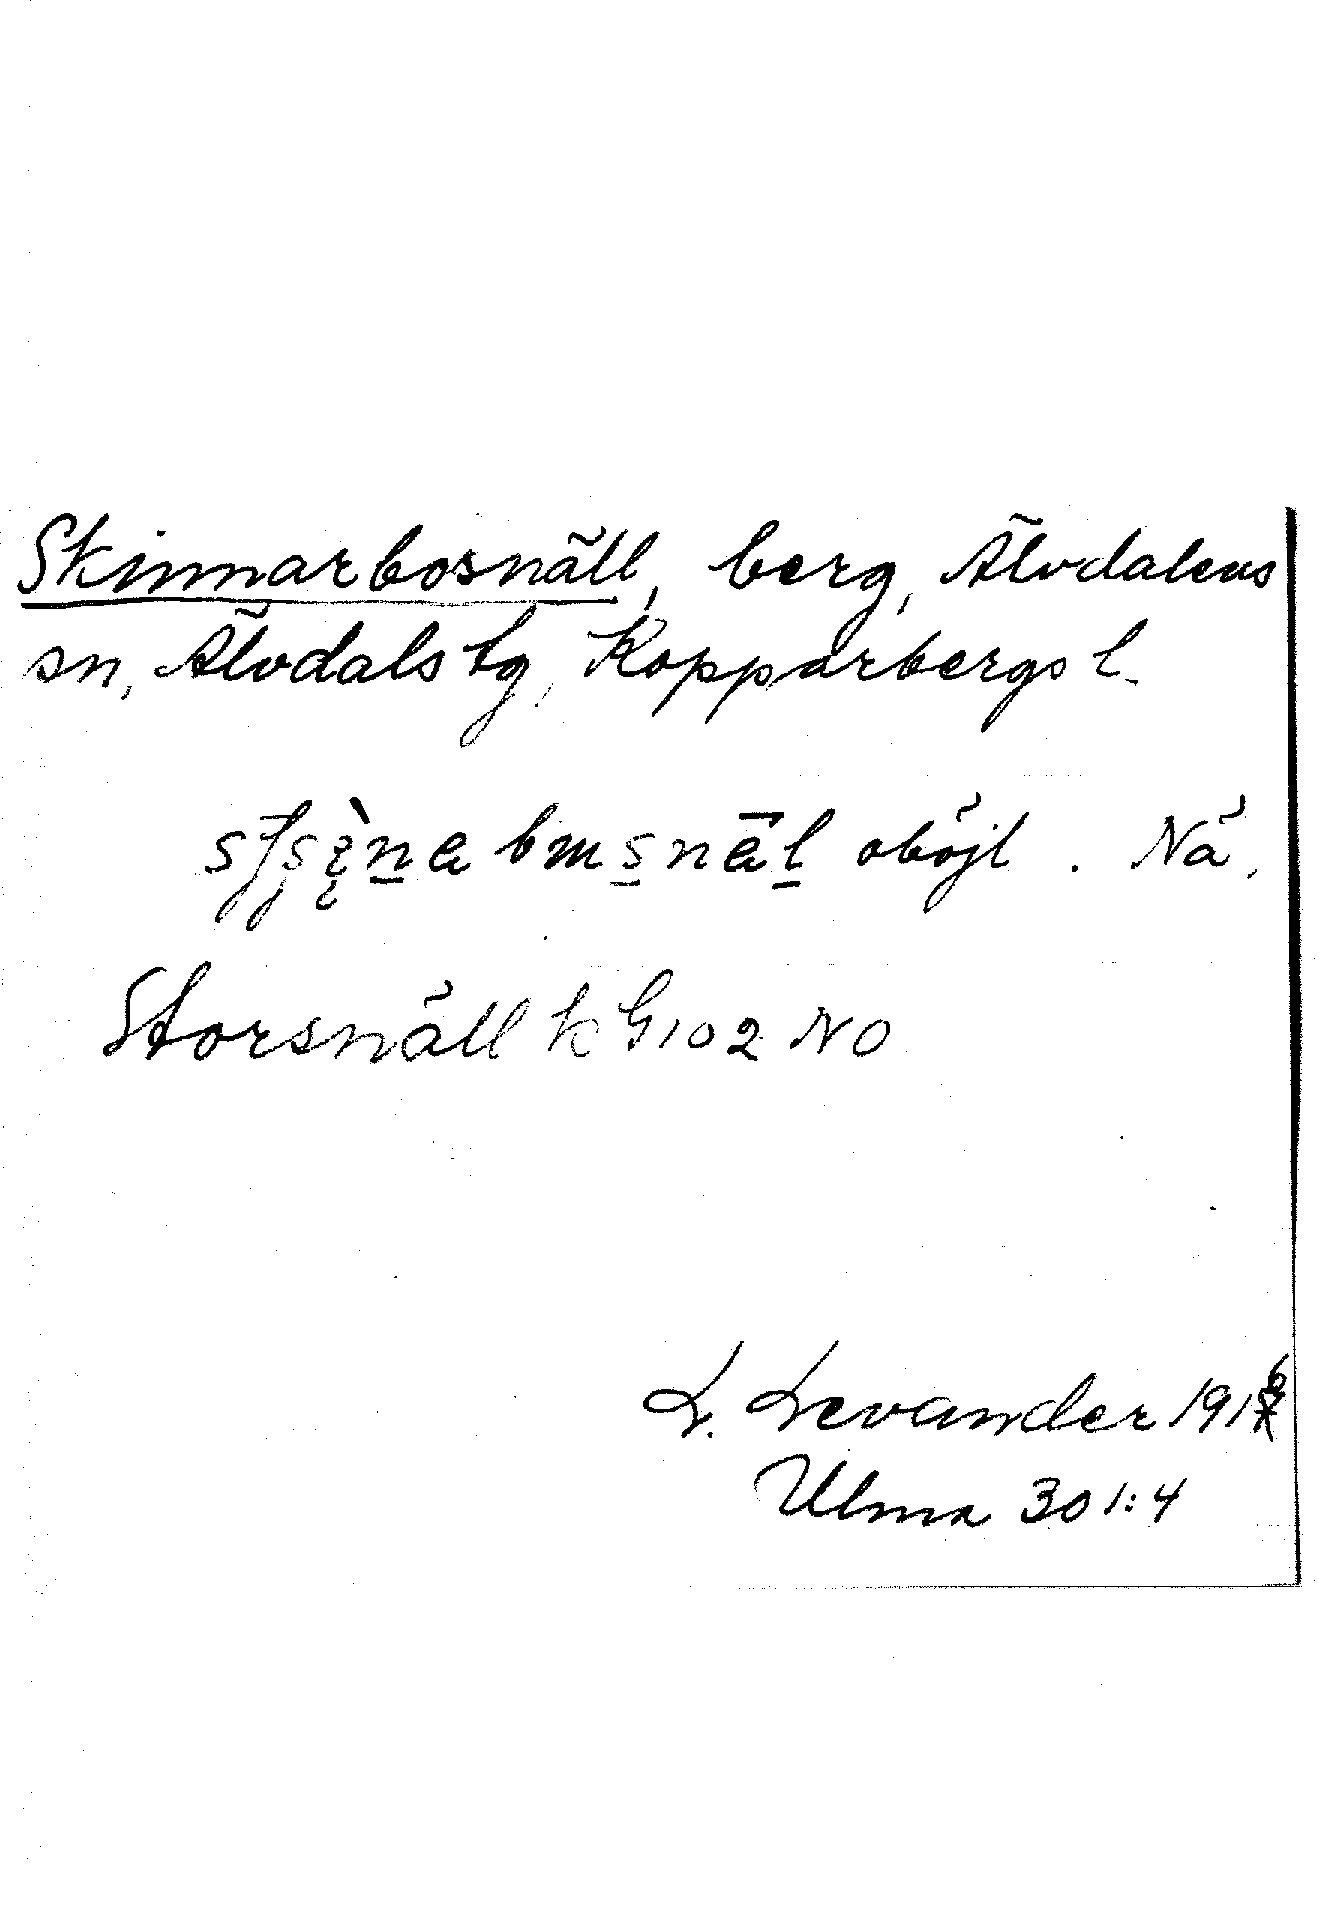 Skinnarbosnäll, berg, Älvdalens
sn, Älvdals tg, Kopparbergs l.
oböjl. Nä,
Storsnäll k G102 NO
L. Levander
Ulma 301:4